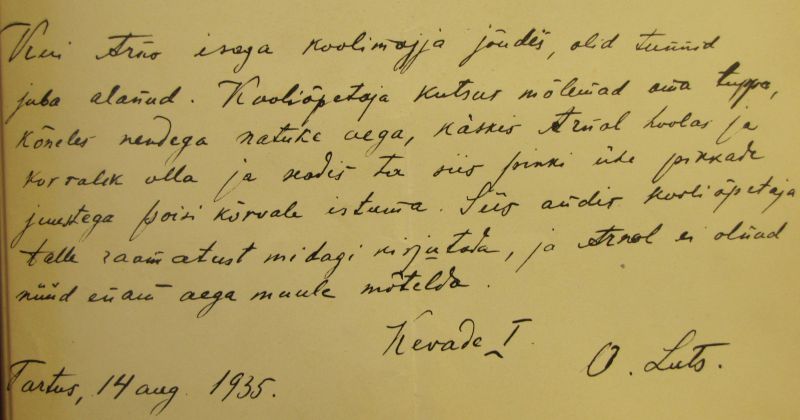 Kui Arno isaga koolimajja jõudis, olid tunnid
juba alanud. Kooliõpetaja kutsus mõlemad oma tuppa,
kõneles nendega natuke aega, käskis Arnol hoolas ja
korralik olla ja seadis ta siis pinki ühe pikkade
juustega poisi kõrvale istuma. Siis andis kooliõpetaja
talle raamatust midagi kirjutada, ja Arnol ei olnud
nüüd enam aega muule mõtelda.
Kevade I.
O. Luts.
Tartus, 14 aug. 1935.